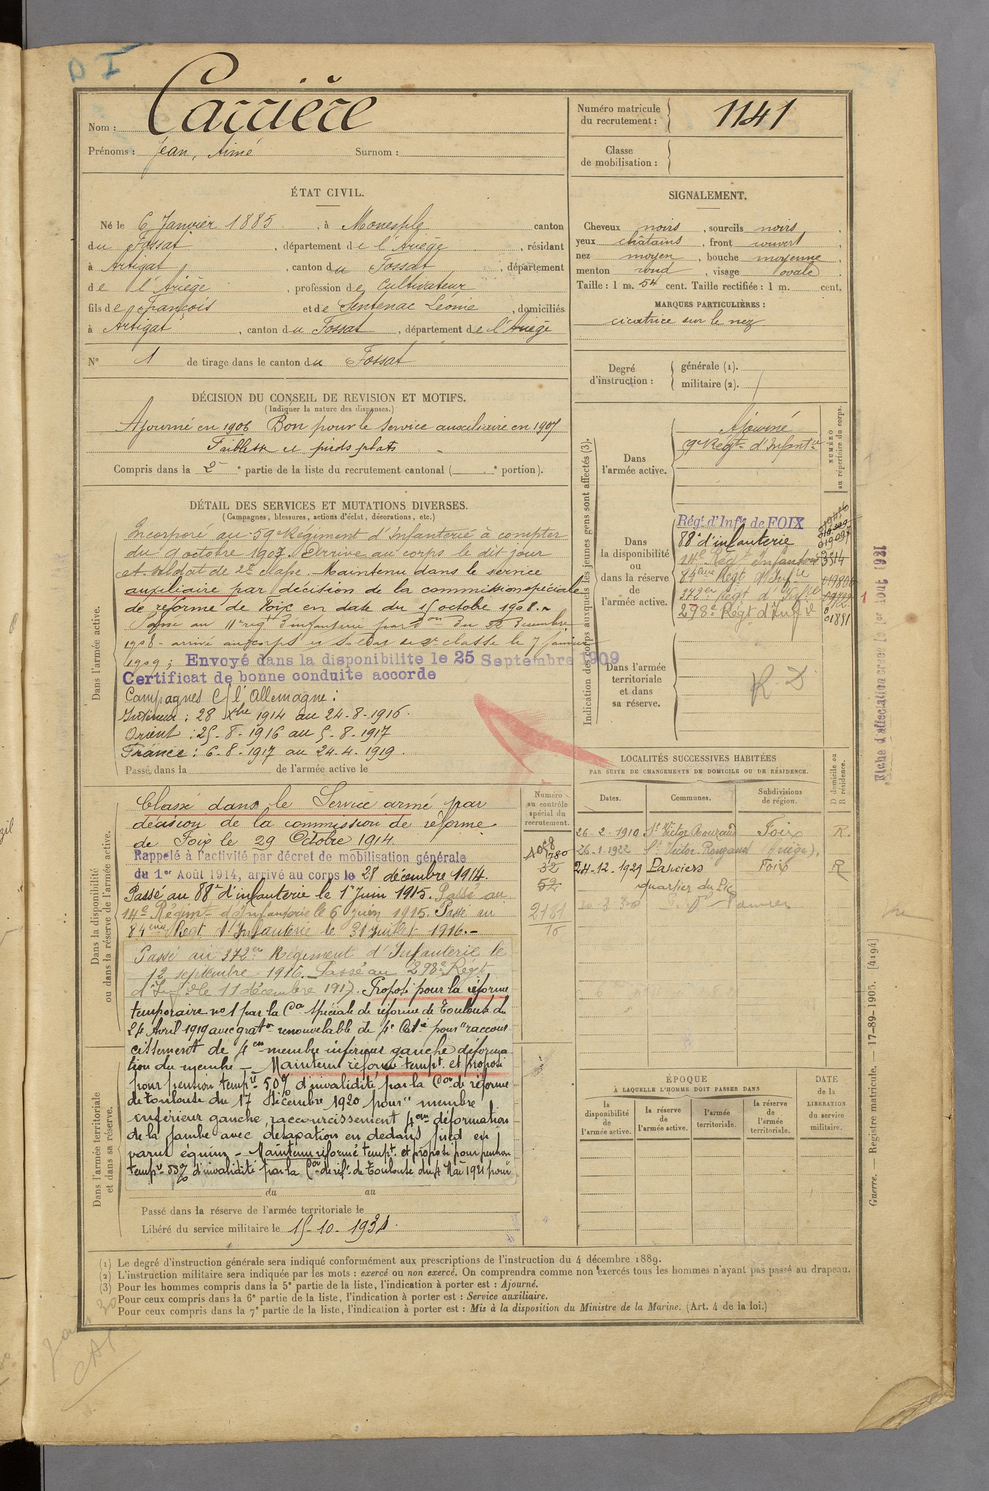 D I
Nom : Carrière
Prénoms : Jean, Aimé Surnom :
Numéro matricule du recrutement : 1141
Classe de mobilisation :
ÉTAT CIVIL.
Né le 6 Janvier 1885, à Monesple canton
du Fossat, département de l'Ariège, résidant
à Artigat, canton du Fossat, département
de l'Ariège, profession de Cultivateur
fils de François et de Sentenac Léonie, domiciliés
à Artigat, canton du Fossat, département de l'Ariège
N° 1 de tirage dans le canton du Fossat
SIGNALEMENT.
Cheveux noirs, sourcils noirs,
yeux châtains, front couvert,
nez moyen, bouche moyenne,
menton rond, visage ovale.
Taille : 1 m. 54 cent. Taille rectifiée : 1 m. cent.
MARQUES PARTICULIÈRES :
cicatrice sur le nez
Degré d'instruction :
générale (1).
militaire (2).
DÉCISION DU CONSEIL DE REVISION ET MOTIFS.
(Indiquer la nature des dispenses.)
Ajourné en 1906 Bon pour le Service auxiliaire en 1907
Faiblesse et pieds plats
Compris dans la 2e partie de la liste du recrutement cantonal ( e portion).
DÉTAIL DES SERVICES ET MUTATIONS DIVERSES.
(Campagnes, blessures, actions d'éclat, décorations, etc.)
Dans l'armée active.
Incorporé au 59e Régiment d'Infanterie à compter
du 9 octobre 1907. Arrivé au corps le dit jour
et soldat de 2e classe. Maintenu dans le service
auxiliaire par décision de la commission spéciale
de réforme de Foix en date du 15 octobre 1908.
Passé au 11e rég d'infanterie par
1908 - arrivé au corps classe le 7 janvier
1909 ; Envoyé dans la disponibilité le 25 Septembre 1909
Certificat de bonne conduite accordé
Campagnes C/ l'Allemagne :
Intérieur : 28 Xbre 1914 au 24-8-1916.
Orient : 25-8-1916 au 5-8-1917
France : 6-8-1917 au 24-4-1919.
Passé dans la de l'armée active le
Dans la disponibilité ou dans la réserve de l'armée active.
Classé dans le Service armé par
décision de la commission de réforme
de Foix le 29 Octobre 1914.
Rappelé à l'activité par décret de mobilisation générale
du 1er Août 1914, arrivé au corps le 28 décembre 1914.
Passé au 88e d'infanterie le 1er Juin 1915. Passé au
14e Régiment d'Infanterie le 6 juin 1915. Passé au
84ème Régt d'Infanterie le 31 Juillet 1916.-
Passé au 372e Régiment d'Infanterie le
12 septembre 1916. Passé au 298e Régt
d'Inf le 11 décembre 1917. Proposé pour la réforme
temporaire n°1 par la Con spéciale de réforme de Toulouse du
24 Avril 1919 avec gratn renouvelable de 4e Catie pour "raccour
cissement de 4 cm membre inférieur gauche déforma
tion du membre - Maintenu réformé tempre et proposé
pour pension tempre 50% d'invalidité par la Con de réforme
de Toulouse du 17 Décembre 1920 pour" membre
inférieur gauche raccourcissement 4 cm déformation
de la jambe avec en dedans pied en
varus équin - Maintenu réformé tempre et proposé pour pension
tempre 55% d'invalidité par la Con de réfe de Toulouse du 4 Mai 1921 pour
Dans l'armée territoriale et dans sa réserve.
du au
Passé dans la réserve de l'armée territoriale le
Libéré du service militaire le 15-10-1934.
Indication des corps auxquels les jeunes gens sont affectés (3).
NUMÉRO au répertoire du corps.
Dans l'armée active.
Ajourné
9e Régt d'Infantie
Dans la disponibilité ou dans la réserve de l'armée active.
Régt d'Infie de FOIX
88e d'infanterie
14e Régt d'Infanterie 3314
84ème Régt d'Infie
372e Régt d'Infie
298e Régt d'Infie
Dans l'armée territoriale et dans sa réserve.
R D
Numéro au contrôle spécial du recrutement.
32
52
LOCALITÉS SUCCESSIVES HABITÉES
PAR SUITE DE CHANGEMENTS DE DOMICILE OU DE RÉSIDENCE.
Dates. Communes. Subdivisions de région. D domicile ou R résidence.
26-2-1910 St Victor Rouzaud Foix R.
26-1-1922 St Victor Rouzaud (Ariège),
24-12-1929 Pamiers Foix R
quartier du Pic
ÉPOQUE
À LAQUELLE L'HOMME DOIT PASSER DANS
la disponibilité de l'armée active.
la réserve de l'armée active.
l'armée territoriale.
la réserve de l'armée territoriale.
DATE de la LIBÉRATION du service militaire.
Guerre. — Registre matricule. — 17-89-1905. [4194]
(1) Le degré d'instruction générale sera indiqué conformément aux prescriptions de l'instruction du 4 décembre 1889.
(2) L'instruction militaire sera indiquée par les mots : exercé ou non exercé. On comprendra comme non exercés tous les hommes n'ayant pas passé au drapeau.
(3) Pour les hommes compris dans la 5e partie de la liste, l'indication à porter est : Ajourné.
Pour ceux compris dans la 6e partie de la liste, l'indication à porter est : Service auxiliaire.
Pour ceux compris dans la 7e partie de la liste, l'indication à porter est : Mis à la disposition du Ministre de la Marine. (Art. 4 de la loi.)